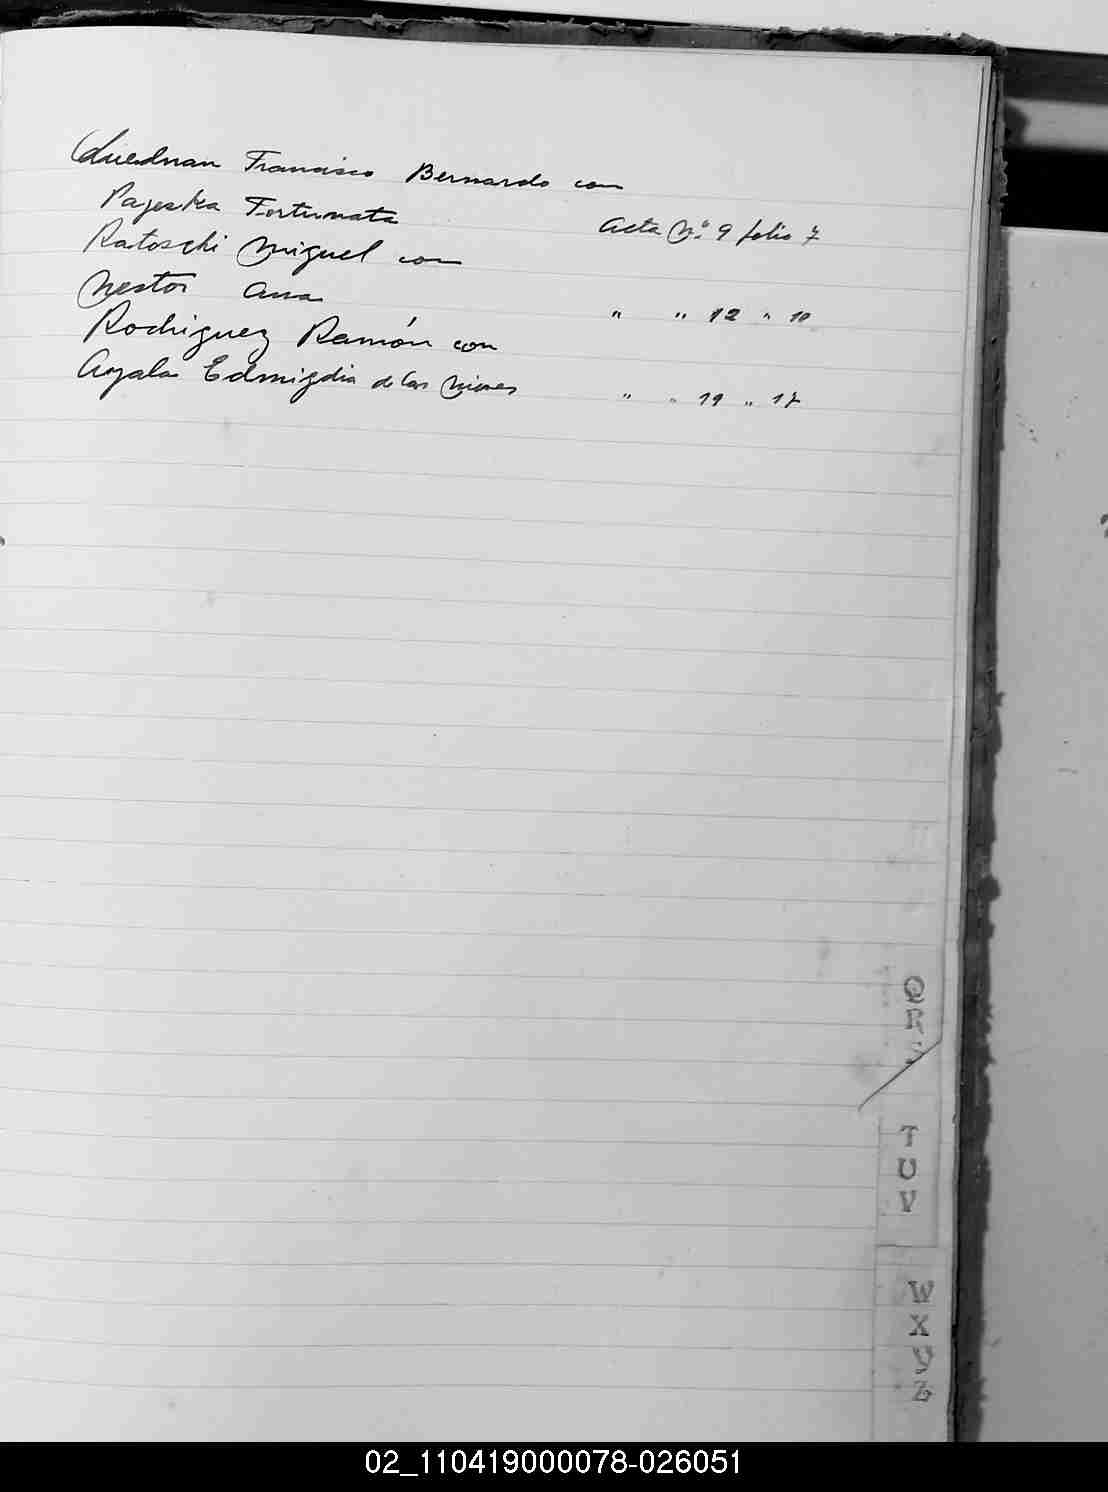 Quednau Francisco Bernardo con
Pajeska Fortunata Acta Nº 9 folio 7
Ratoschi Miguel con
Nestor Ana " " 12 " 10
Rodriguez Ramón con
Ayala Edmigdia de las Nieves " " 19 " 17
Q
R
S
T
U
V
W
X
Y
Z
02_110419000078-026051